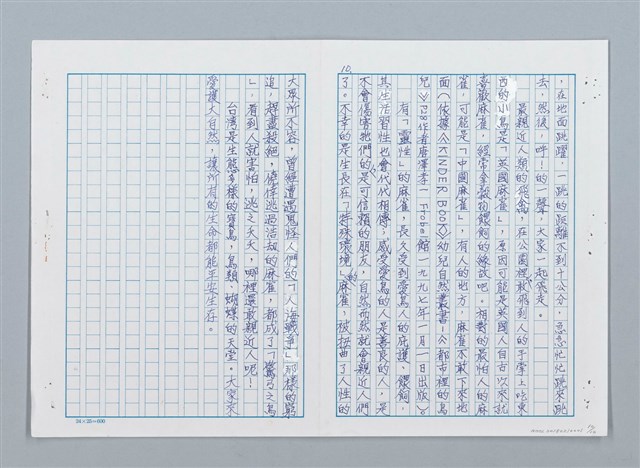 10.
，在地面跳躍，一跳的距離不到十公分，急急忙忙跳來跳
去，然後，呼！的一聲，大家一起飛走。
最親近人類的飛禽，在公園裡敢飛到人的手掌上吃東
西的小鳥是「英國麻雀」，原因可能是英國人自古以來就
喜歡麻雀，經常拿穀物餵飼的緣故吧。相對的最怕人的麻
雀，可能是「中國麻雀」，有人的地方，麻雀不敢下來地
面（依據《KINDER BOOK》幼兒自然叢書—《都市裡的鳥
兒》P18作者唐澤孝一Frobel館一九九七年一月一日出版）。
有「靈性」的麻雀，長久受到愛鳥人的庇護、餵飼，
其生活習性也會代代相傳，感受愛鳥的人是善良的人，是
不會傷害牠們的，是可信賴的朋友，自然而然就會親近人們
了。不幸的是生長在「特殊環境」的麻雀，被扭曲了人性的
大眾所不容，曾經遭遇鬼怪人們的「人海戰爭」那樣的窮
追，趕盡殺絕，僥倖逃過浩劫的麻雀，都成了「驚弓之鳥
」，看到人就害怕，逃之夭夭，哪裡還敢親近人呢！
台灣是生態多樣的寶島，鳥類、蝴蝶的天堂。大家來
愛護大自然，讓所有的生命都能平安生存。
24×25=600